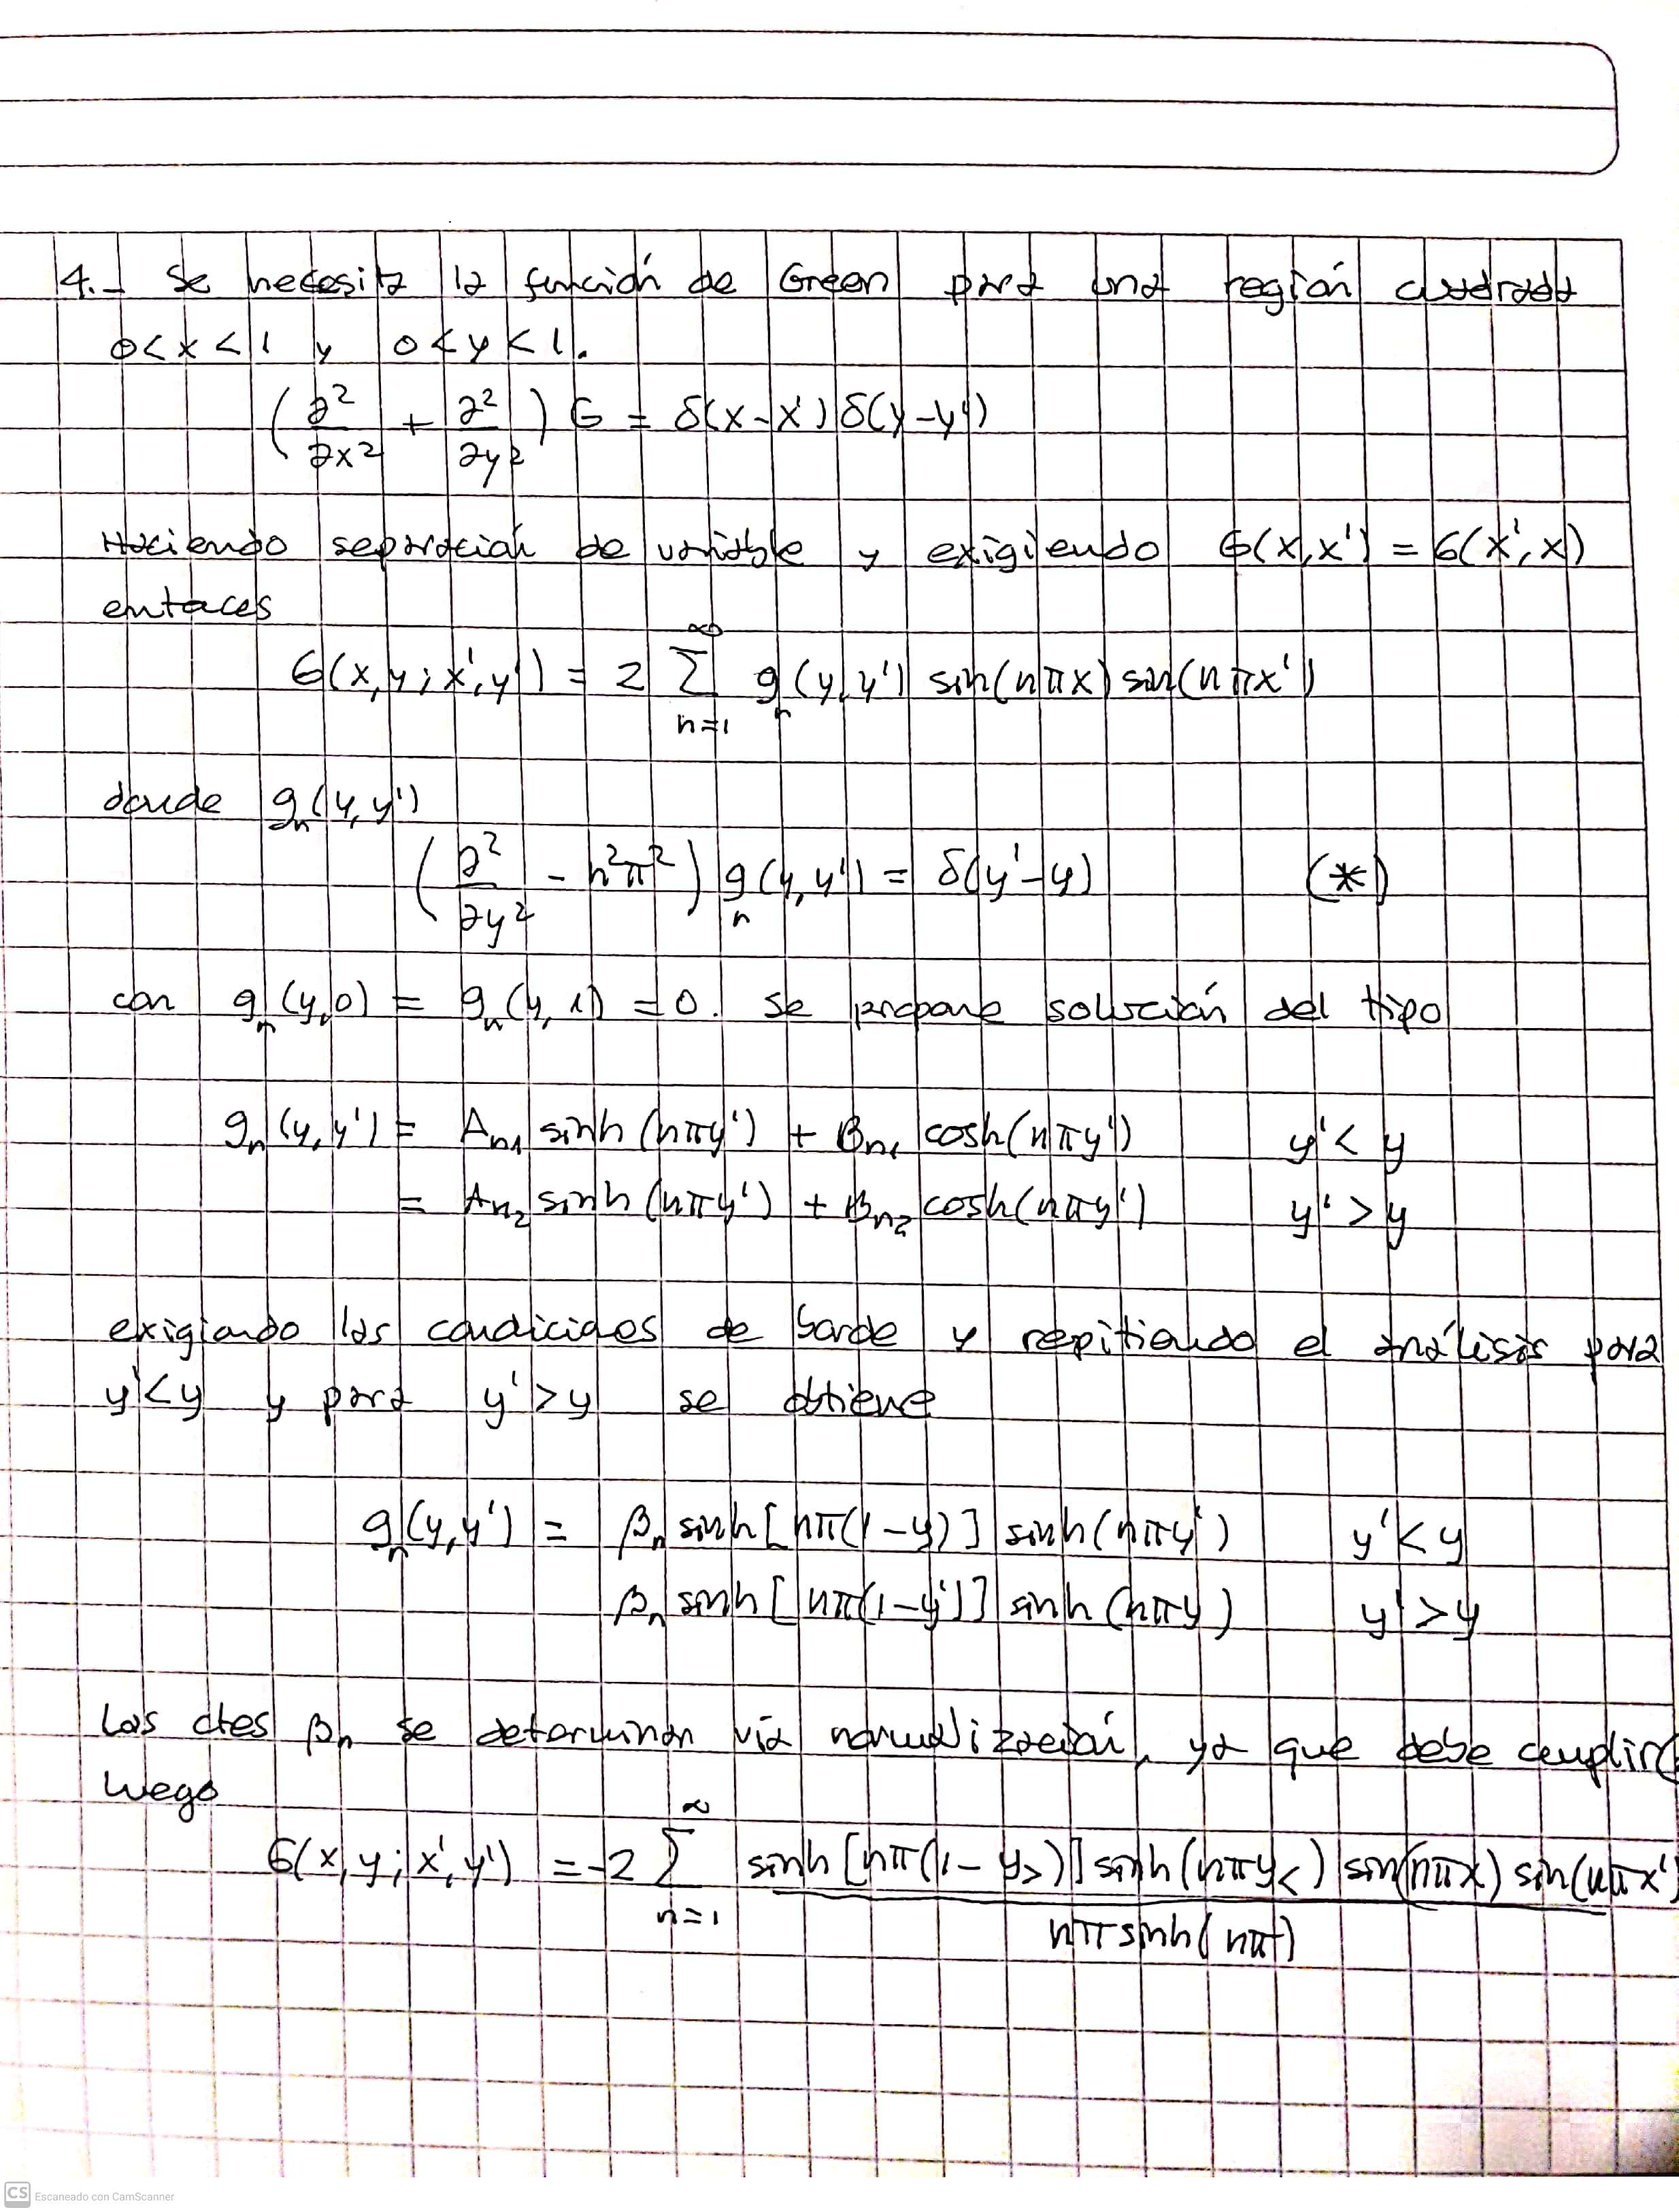 4.- Se necesita la función de Green para una región cuadrada
0<x<1 y 0<y<1.
(∂²/∂x² + ∂²/∂y²) G = δ(x-x')δ(y-y')
Haciendo separación de variable y exigiendo G(x,x') = G(x',x)
entonces
G(x,y;x',y') = 2 ∑_{n=1}^{∞} g_n(y,y') sin(nπx) sin(nπx')
donde g_n(y,y')
(∂²/∂y² - n²π²) g_n(y,y') = δ(y'-y) (*)
con g_n(y,0) = g_n(y,1) = 0. se propone solución del tipo
g_n(y,y') = A_{n1} sinh(nπy') + B_{n1} cosh(nπy') y'<y
= A_{n2} sinh(nπy') + B_{n2} cosh(nπy') y'>y
exigiendo las condiciones de borde y repitiendo el análisis para
y'<y y para y'>y se obtiene
g_n(y,y') = β_n sinh[nπ(1-y)] sinh(nπy') y'<y
β_n sinh[nπ(1-y')] sinh(nπy) y'>y
Las ctes β_n se determinan vía normalización, ya que debe cumplir(
luego
G(x,y;x',y') = -2 ∑_{n=1}^{∞} sinh[nπ(1-y_>)] sinh(nπy_<) sin(nπx) sin(nπx')
nπ sinh(nπ)
CS Escaneado con CamScanner